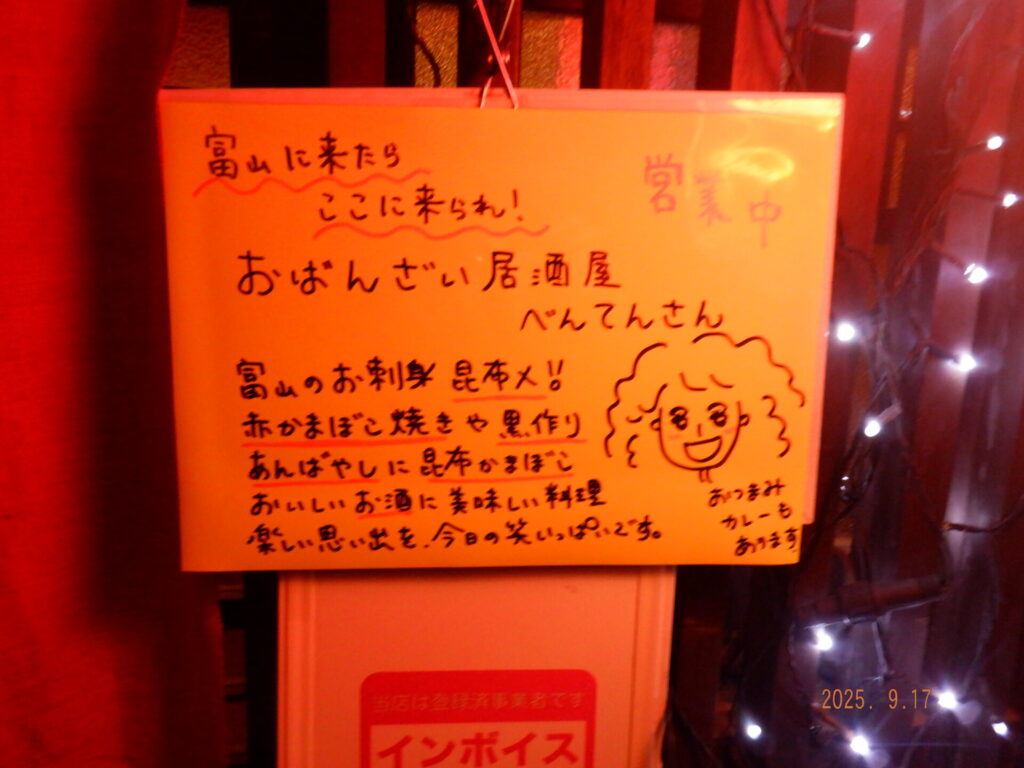 富山に来たら
ここに来られ!
営業中
おばんざい居酒屋
べんてんさん
富山のお刺身 昆布〆!!
赤かまぼこ焼きや黒作り
あんばやしに昆布かまぼこ
おいしいお酒に美味しい料理
楽しい思い出を、今日の笑いっぱいです。
おつまみ
カレーも
あります
当店は登録済事業者です
インボイス
2025. 9.17